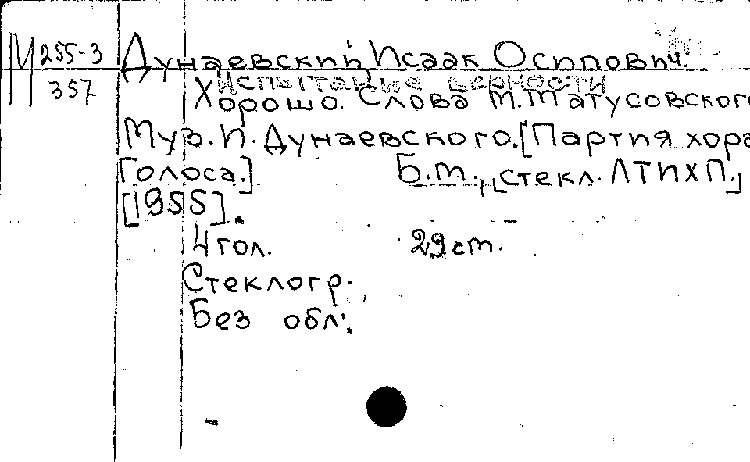 М 255-3
357
Дунаевский, Исаак Осипович.
Испытание верности
Хорошо. Слова М. Матусовского
Муз. И. Дунаевского. [Партия хора
Голоса.] Б.м., [стекл. ЛТИХП.]
[1955].
4 гол. 29 cm.
Стеклогр.
Без обл.